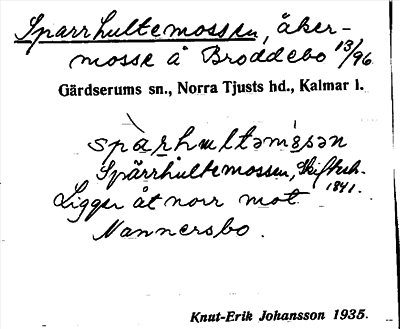 Sparrhultemossen, åker-
mosse å Broddebo 13/96
Gärdserums sn., Norra Tjusts hd., Kalmar l.
sparhultəmosən
Spärrhultemossen, Skiftesh. 1841.
Ligger åt norr mot
Nannersbo.
Knut-Erik Johansson 1935.